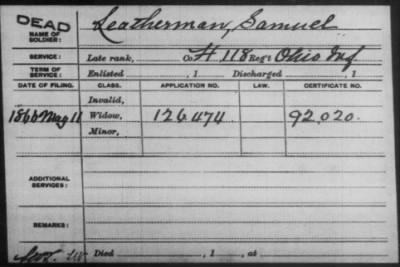 DEAD
NAME OF SOLDIER: Leatherman, Samuel
SERVICE: Late rank, Co. H 118 Reg't Ohio Inf
TERM OF SERVICE: Enlisted , 1 Discharged , 1
DATE OF FILING. CLASS. APPLICATION NO. LAW. CERTIFICATE NO.
Invalid,
1866 May 11 Widow, 126474 92,020.
Minor,
ADDITIONAL SERVICES:
REMARKS:
Died , 1 , at